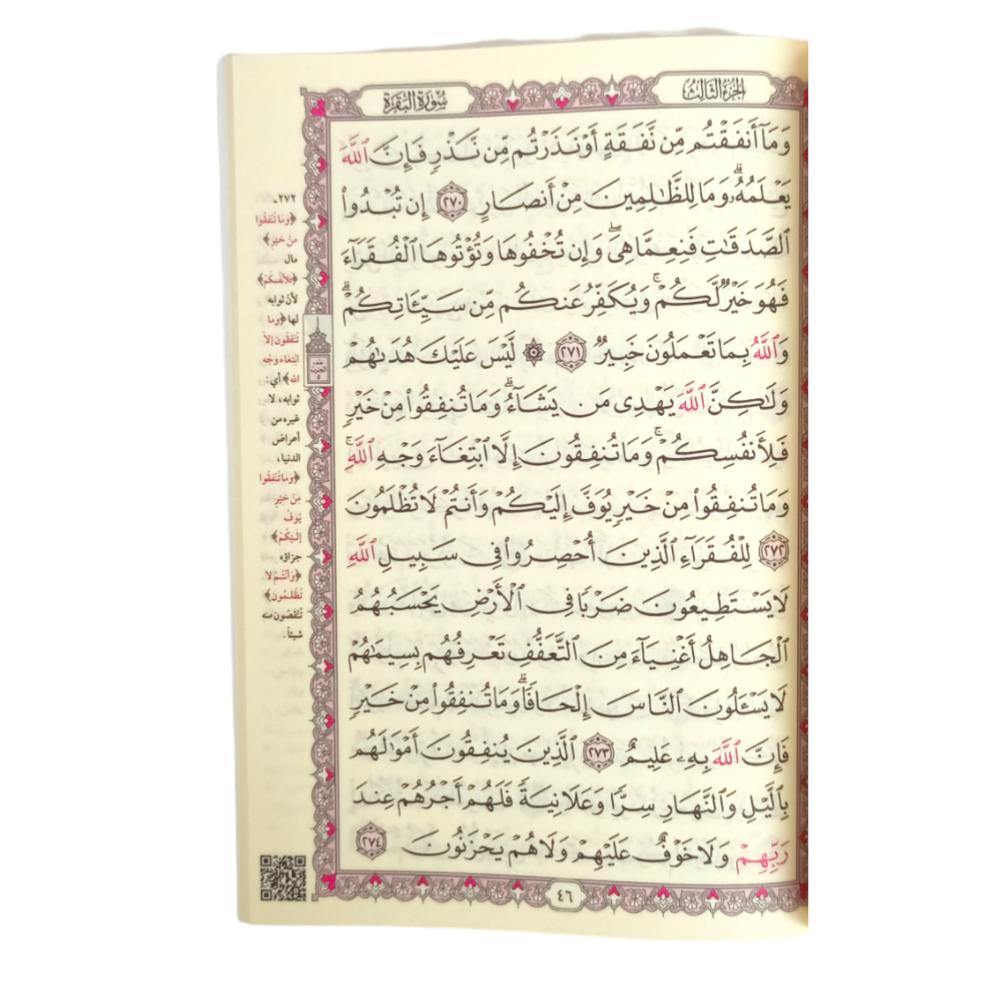 الجزء الثالث
سورة البقرة
وَمَآ أَنفَقْتُم مِّن نَّفَقَةٍ أَوْ نَذَرْتُم مِّن نَّذْرٍ فَإِنَّ ٱللَّهَ
يَعْلَمُهُۥۗ وَمَا لِلظَّٰلِمِينَ مِنْ أَنصَارٍ ٢٧٠ إِن تُبْدُوا۟
ٱلصَّدَقَٰتِ فَنِعِمَّا هِىَۖ وَإِن تُخْفُوهَا وَتُؤْتُوهَا ٱلْفُقَرَآءَ
فَهُوَ خَيْرٌ لَّكُمْۚ وَيُكَفِّرُ عَنكُم مِّن سَيِّـَٔاتِكُمْۗ
وَٱللَّهُ بِمَا تَعْمَلُونَ خَبِيرٌ ٢٧١ ۞ لَّيْسَ عَلَيْكَ هُدَىٰهُمْ
وَلَٰكِنَّ ٱللَّهَ يَهْدِى مَن يَشَآءُۗ وَمَا تُنفِقُوا۟ مِنْ خَيْرٍ
فَلِأَنفُسِكُمْۚ وَمَا تُنفِقُونَ إِلَّا ٱبْتِغَآءَ وَجْهِ ٱللَّهِۚ
وَمَا تُنفِقُوا۟ مِنْ خَيْرٍ يُوَفَّ إِلَيْكُمْ وَأَنتُمْ لَا تُظْلَمُونَ
٢٧٢ لِلْفُقَرَآءِ ٱلَّذِينَ أُحْصِرُوا۟ فِى سَبِيلِ ٱللَّهِ
لَا يَسْتَطِيعُونَ ضَرْبًا فِى ٱلْأَرْضِ يَحْسَبُهُمُ
ٱلْجَاهِلُ أَغْنِيَآءَ مِنَ ٱلتَّعَفُّفِ تَعْرِفُهُم بِسِيمَٰهُمْ
لَا يَسْـَٔلُونَ ٱلنَّاسَ إِلْحَافًاۗ وَمَا تُنفِقُوا۟ مِنْ خَيْرٍ
فَإِنَّ ٱللَّهَ بِهِۦ عَلِيمٌ ٢٧٣ ٱلَّذِينَ يُنفِقُونَ أَمْوَٰلَهُم
بِٱلَّيْلِ وَٱلنَّهَارِ سِرًّا وَعَلَانِيَةً فَلَهُمْ أَجْرُهُمْ عِندَ
رَبِّهِمْ وَلَا خَوْفٌ عَلَيْهِمْ وَلَا هُمْ يَحْزَنُونَ ٢٧٤
٤٦
٢٧٢ـ
﴿وَمَا تُنْفِقُوا
مِنْ خَيْرٍ﴾
مال
﴿فَلِأَنْفُسِكُمْ﴾
لأنّ ثوابه
لها ﴿وَمَا
تُنْفِقُونَ إِلَّا
ابْتِغَاءَ وَجْهِ
اللهِ﴾ أي:
ثوابه، لا
غيره من
أعراض
الدنيا،
﴿وَمَا تُنْفِقُوا
مِنْ خَيْرٍ
يُوَفَّ
إِلَيْكُمْ﴾
جزاؤه
﴿وَأَنْتُمْ لَا
تُظْلَمُونَ﴾
تُنْقَصُون منه
شيئاً.